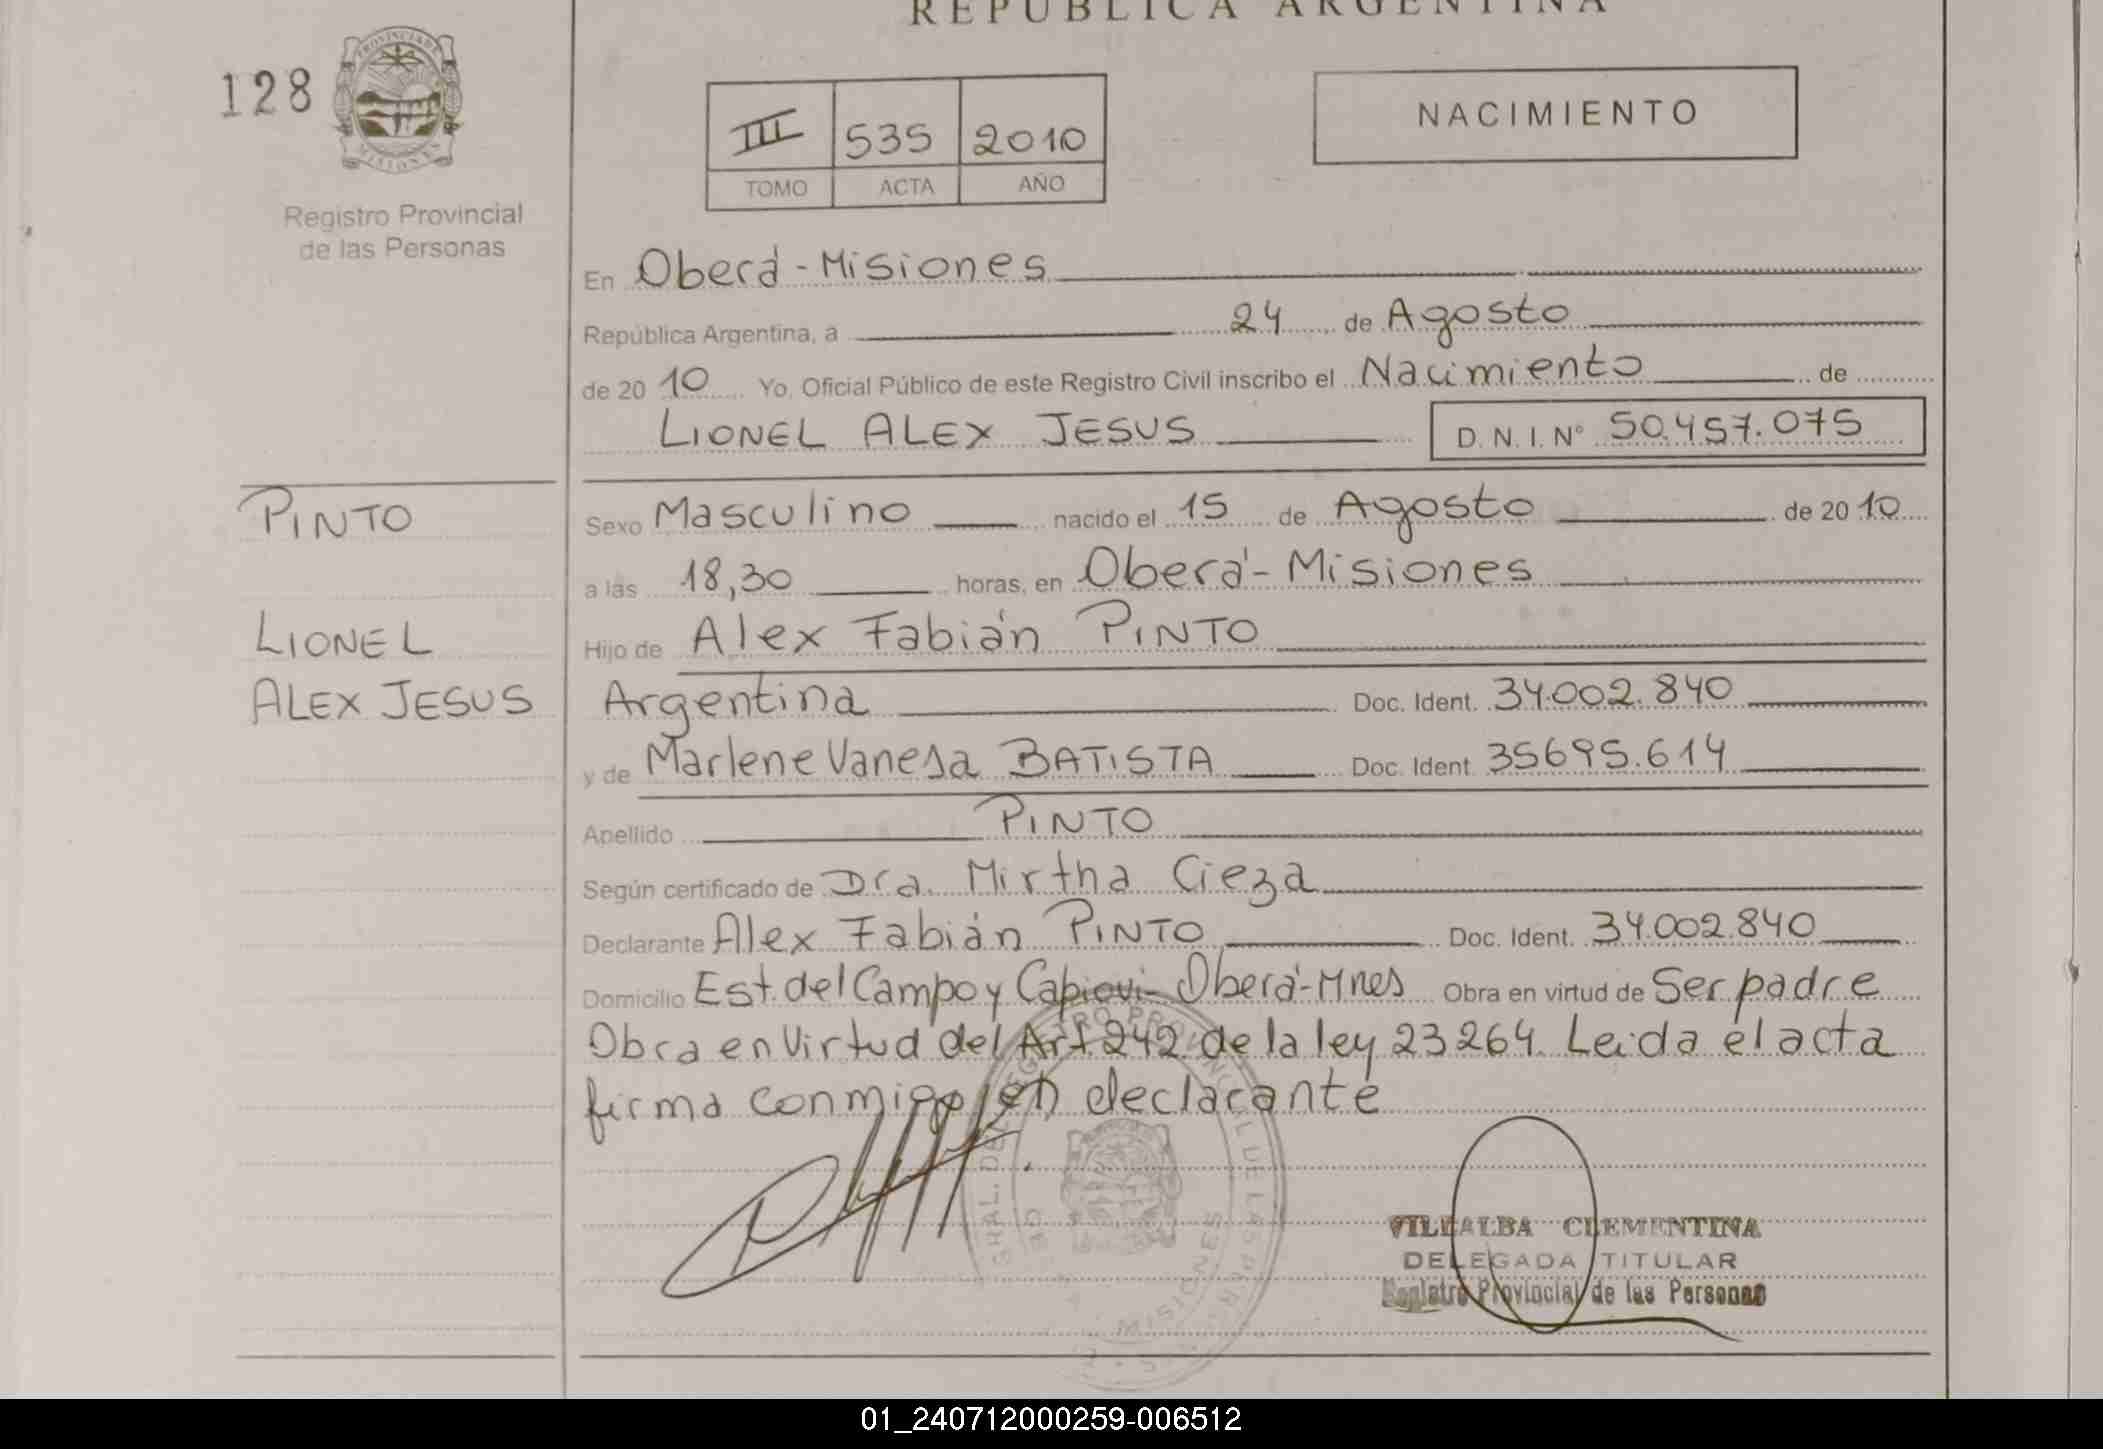 REPUBLICA ARGENTINA
128
PROVINCIA DE MISIONES
Registro Provincial
de las Personas
III 535 2010
TOMO ACTA AÑO
NACIMIENTO
En Oberá - Misiones
República Argentina, a 24 de Agosto
de 2010 Yo, Oficial Público de este Registro Civil inscribo el Nacimiento de
LIONEL ALEX JESUS D.N.I.Nº 50.457.075
PINTO
LIONEL
ALEX JESUS
Sexo Masculino nacido el 15 de Agosto de 2010
a las 18,30 horas, en Oberá - Misiones
Hijo de Alex Fabián PINTO
Argentina Doc. Ident. 34.002.840
y de Marlene Vanesa BATISTA Doc. Ident. 35695.614
Apellido PINTO
Según certificado de Dra. Mirtha Cieza
Declarante Alex Fabián PINTO Doc. Ident. 34.002.840
Domicilio Est. del Campo y Capiovi - Oberá - Mnes Obra en virtud de Ser padre
Obra en Virtud del Art. 242 de la ley 23264. Leida el acta
firma conmigo el declarante
VILLALBA CLEMENTINA
DELEGADA TITULAR
Registro Provincial de las Personas
01_240712000259-006512